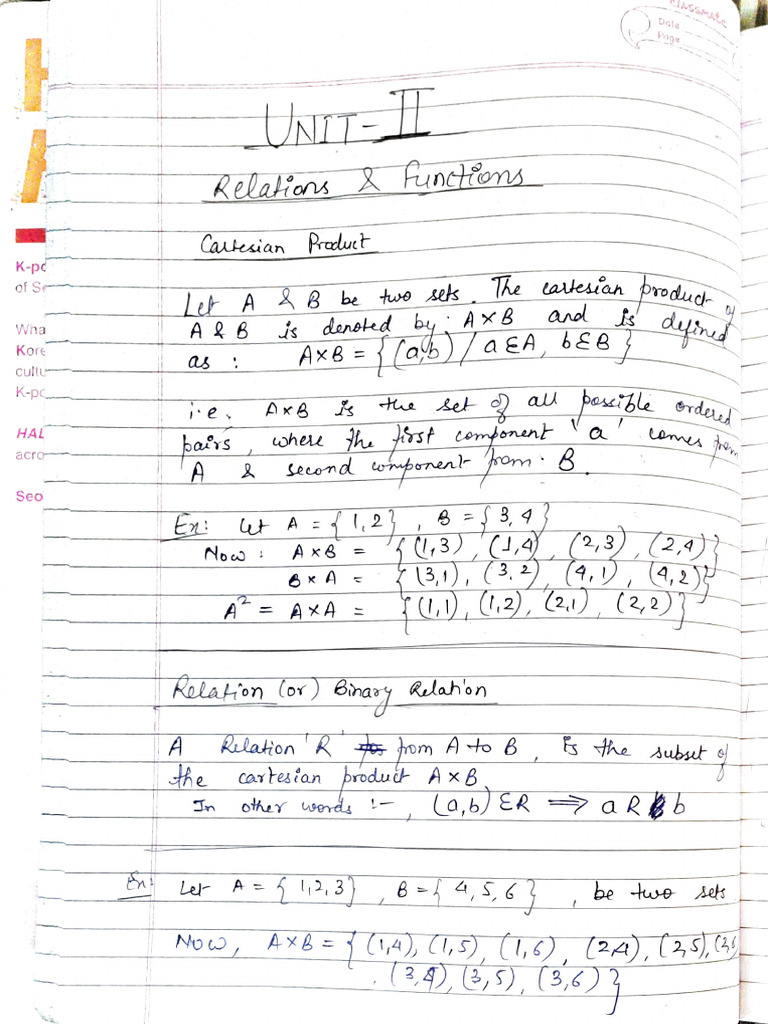 CLASSMATE
Date
Page
UNIT-II
Relations & Functions
Cartesian Product
Let A & B be two sets. The cartesian product of
A & B is denoted by: A×B and is defined
as : A×B = {(a,b) / a∈A, b∈B}
i.e. A×B is the set of all possible ordered
pairs, where the first component 'a' comes from
A & second component from B.
Ex: Let A = {1,2}, B = {3,4}
Now : A×B = {(1,3), (1,4), (2,3), (2,4)}
B×A = {(3,1), (3,2), (4,1), (4,2)}
A² = A×A = {(1,1), (1,2), (2,1), (2,2)}
Relation (or) Binary Relation
A Relation 'R' from A to B, is the subset of
the cartesian product A×B
In other words :- , (a,b) ∈R ⟹ a R b
Ex: Let A = {1,2,3}, B = {4,5,6}, be two sets
Now, A×B = {(1,4), (1,5), (1,6), (2,4), (2,5), (2,6
, (3,4), (3,5), (3,6)}
K-po
of Se
Wha
Kore
cultu
K-po
HAL
acro
Seo